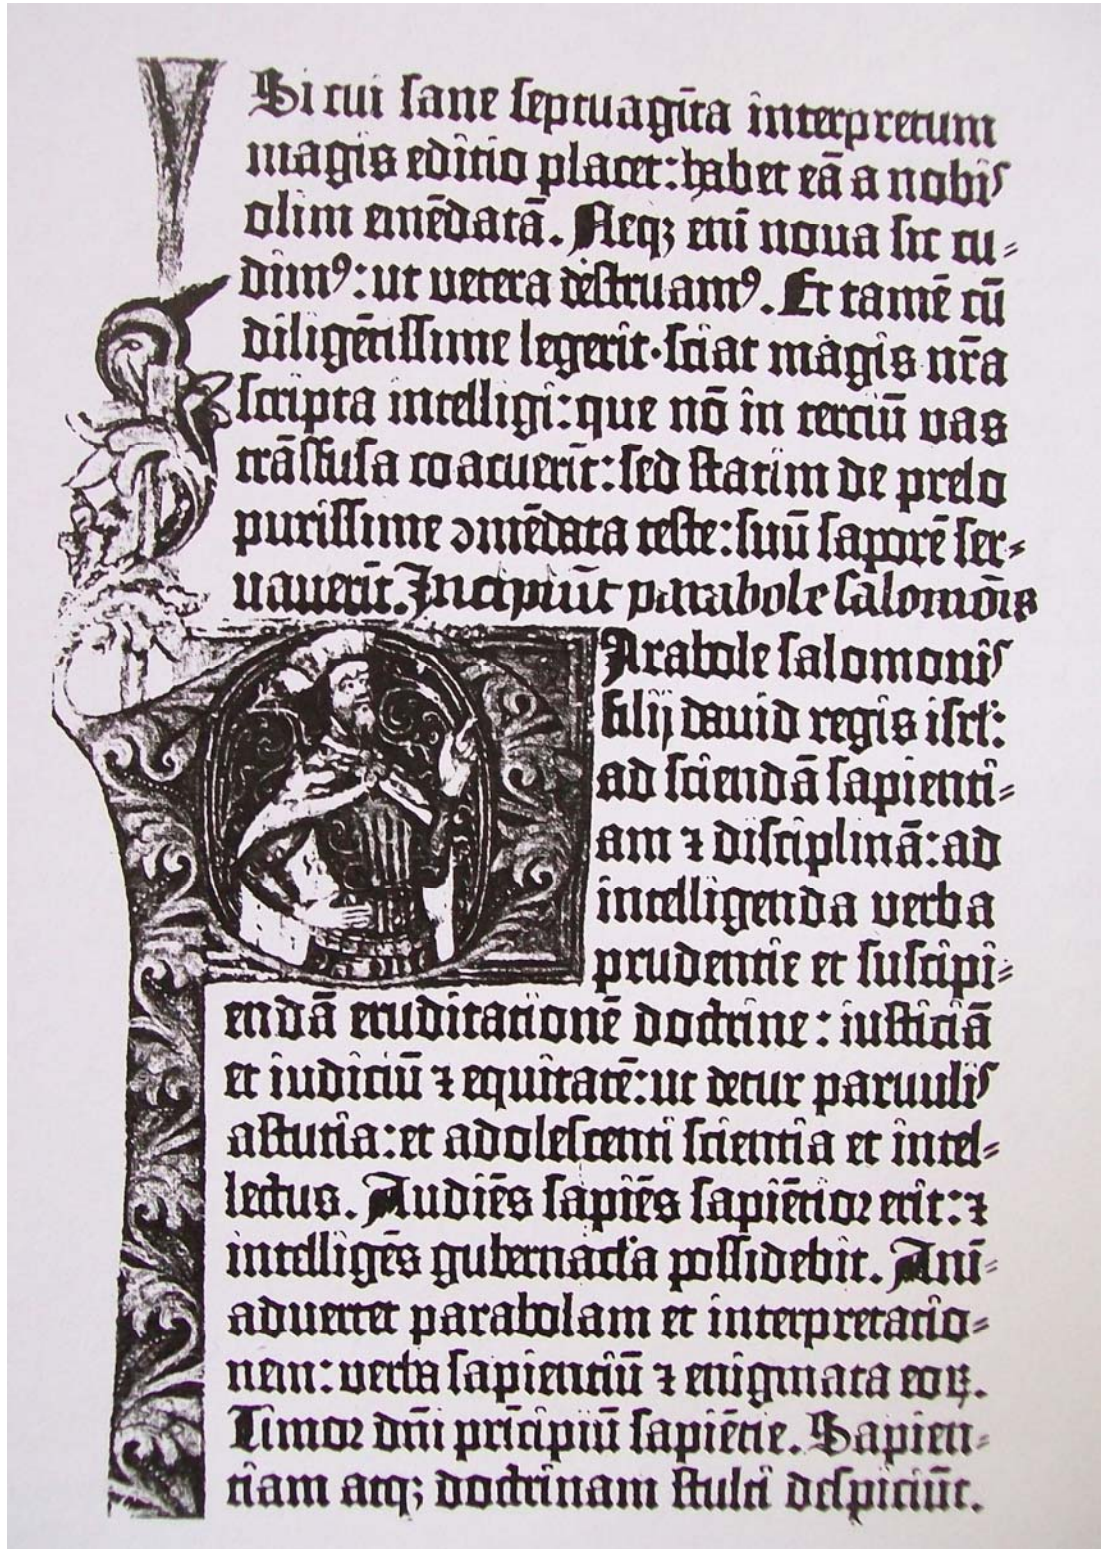 Si cui sane septuagīta interpretum
magis editio placet: habet eā a nobis
olim emēdatā. Neqꝫ eni̅ noua sic cu⸗
dimꝰ: ut vetera destruamꝰ. Et tamē cū
diligētissime legerit·sciat magis nr̄a
scripta intelligi: que nō in terciū vas
trāsfusa coacuerīt: sed statim de prelo
purissime ꝯmēdata teste: suū saporē ser⸗
uauerīt. Incipiūt parabole salomōis
Arabole salomonis
filij dauid regis isrł:
ad sciendā sapienti⸗
am ⁊ disciplinā: ad
intelligenda verba
prudentie et suscipi⸗
endā eruditationē doctrine: iusticiā
et iudiciū ⁊ equitatē: ut detur paruulis
astutia: et adolescenti scientia et intel⸗
lectus. Audiēs sapiēs sapiētior erit: ⁊
intelligēs gubernacła possidebit. Ani̅⸗
aduertet parabolam et interpretatio⸗
nem: verba sapientiū ⁊ enigmata eoꝝ.
Timor dn̄i prīcipiū sapiētie. Sapien⸗
tiam atqꝫ doctrinam stulti despiciūt.